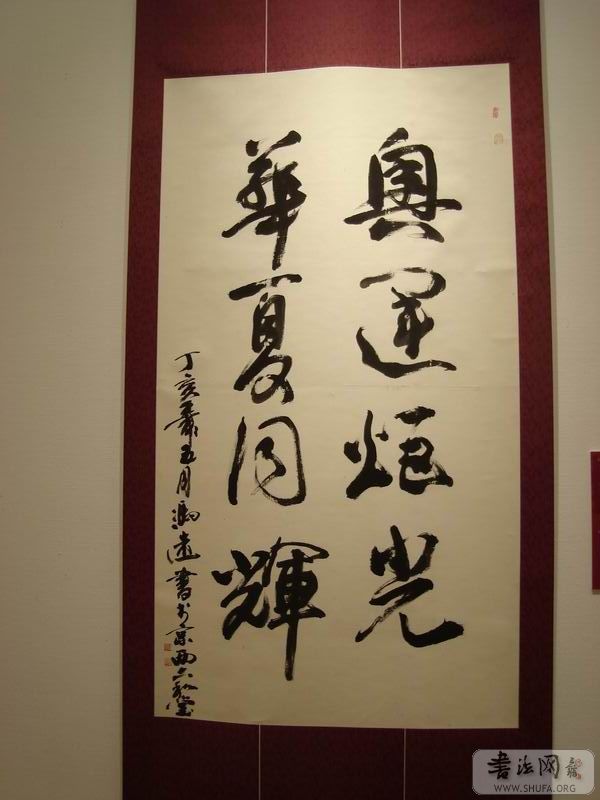 奥運炬光
華夏同輝
丁亥年五月馮遠書於京西六和堂
書法网
WWW.SHUFA.ORG